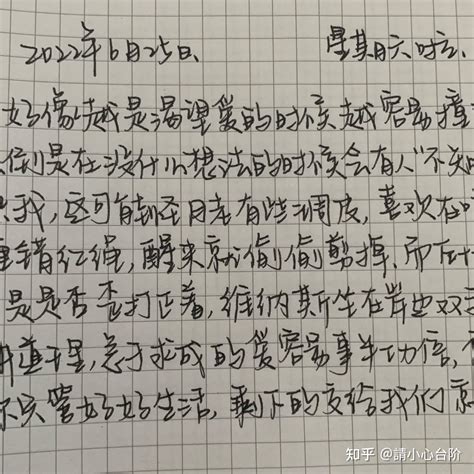 2022年6月25日、 星期六 晴天、
好像越是渴望爱的时候越容易撞
倒是在没什么想法的时候会有人“不知
我，这可能轮月老有些调皮，喜欢在
错红绳，醒来就偷偷剪掉、而后
是是否歪打正着，维纳斯坐在岸边双
讲道理，急于求成的爱容易事半功倍，
你只管好好生活，剩下的交给我们
知乎 @請小心台阶